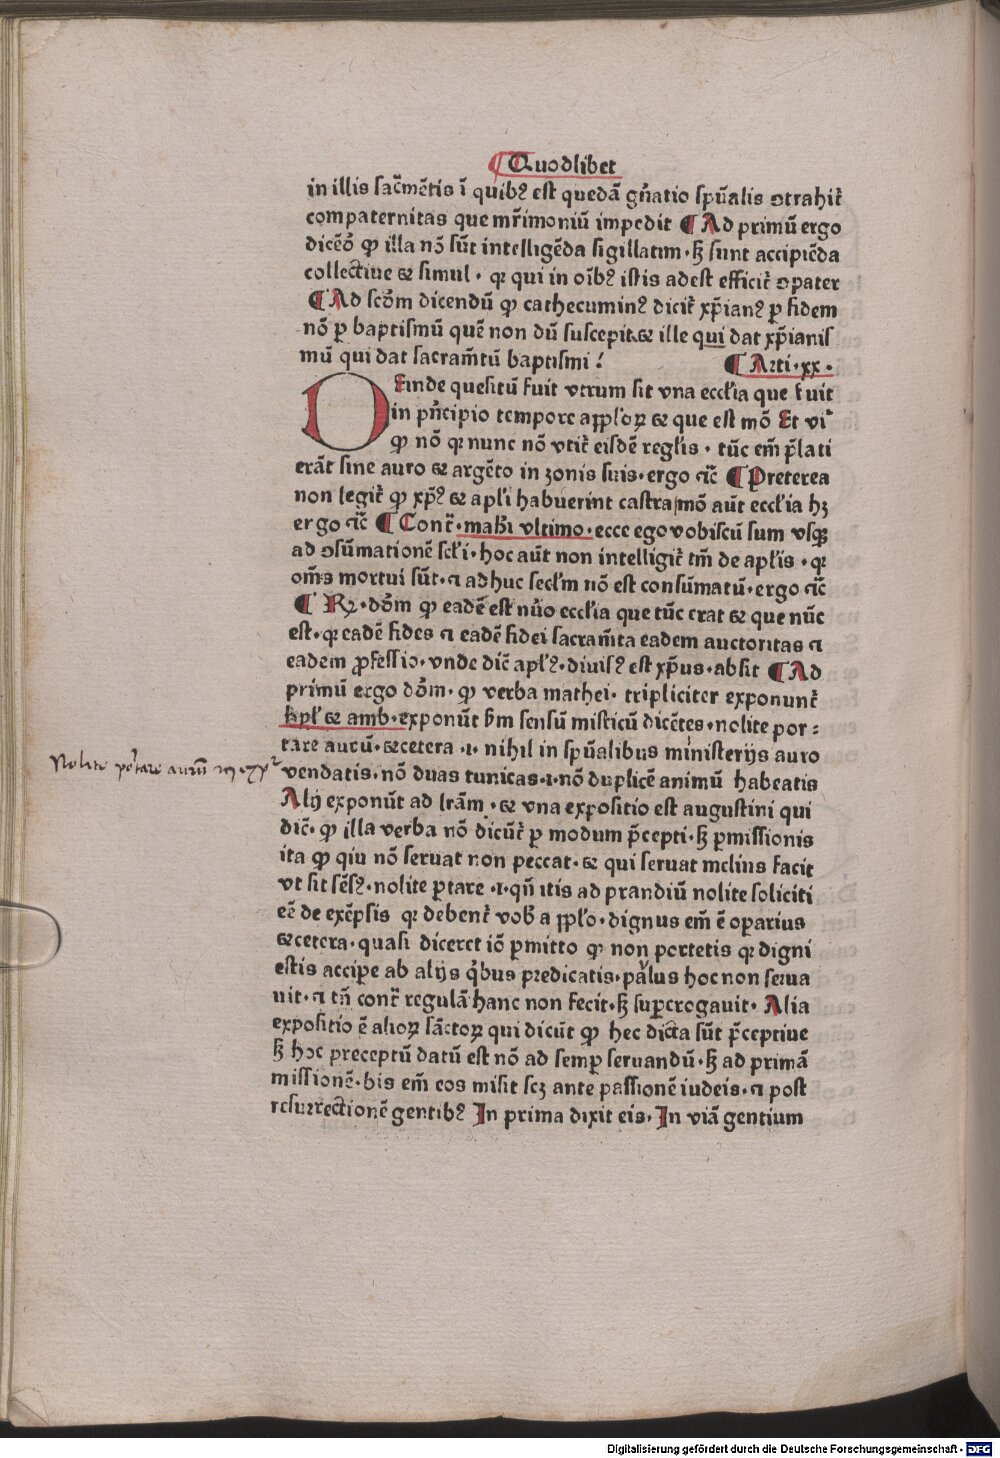 ¶ Quodlibet
in illis sac̃mẽtis ĩ quibꝰ est quedã gñatio sp̃ualis ↄtrahit̃
compaternitas que mr̃imoniũ impedit ¶ Ad primũ ergo
dicẽꝰ ꝙ illa nõ sũt intelligẽda sigillatim · ꝫ sunt accipiẽda
collectiue ⁊ simul · qꝛ qui in oĩbꝰ istis adest efficit̃ ↄpater
¶ Ad scðm dicendũ ꝙ cathecuminꝰ dicit̃ xp̃ianꝰ ꝑ fidem
nõ ꝑ baptismũ quẽ non dũ suscepit · ⁊ ille qui dat xp̃ianis
mũ qui dat sacram̃tũ baptismi ! ¶ Arti · xx ·
DEinde quesitũ fuit vtrum sit vna eccl̃ia que fuit
in pñcipio tempore apl̃oꝝ ⁊ que est mõ Et vĩ
ꝙ nõ qꝛ nunc nõ vtit̃ eisdẽ regl̃is · tũc em̃ p̃lati
erãt sine auro ⁊ argẽto in zonis suis · ergo ⁊c̃ ¶ Preterea
non legit̃ ꝙ xp̃ꝰ ⁊ apl̃i habuerint castra mõ aũt eccl̃ia hꝫ
ergo ⁊c̃ ¶ Cont̃ · math̃i vltimo · ecce ego vobiscũ sum vsqꝫ
ad ↄsũmationẽ scl̃i · hoc aũt non intelligit̃ tm̃ de apl̃is · qꝛ
om̃s mortui sũt · ⁊ adhuc secl̃m nõ est consũmatũ · ergo ⁊c̃
¶ Rꝫ · dõm ꝙ eadẽ est nũo eccl̃ia que tũc erat ⁊ que nũc
est · qꝛ eadẽ fides ⁊ eadẽ fidei sacram̃ta eadem auctoritas ⁊
eadem ꝓfessio · vnde dic̃ apl̃ꝰ · diuisꝰ est xp̃us · absit ¶ Ad
primũ ergo dõm · ꝙ verba mathei · tripliciter exponunt̃
⁊ amb · exponũt ẽm sensũ misticũ dicẽtes · nolite por :
tare aurũ · ⁊cetera · i · nihil in sp̃ualibus ministerijs auro
Nolite portare aurũ m · xxᵒ
vendatis · nõ duas tunicas · i · nõ duplicẽ animũ habeatis
Alij exponũt ad lr̃am · ⁊ vna expositio est augustini qui
dic̃ · ꝙ illa verba nõ dicũt̃ ꝑ modum p̃cepti · ꝫ ꝑmissionis
ita ꝙ qiu nõ seruat non peccat · ⁊ qui seruat melius facit
vt sit sẽsꝰ · nolite ꝑtare · i · qñ itis ad prandiũ nolite soliciti
eẽ de exẽpsis qꝛ debent̃ vob̃ a ppl̃o · dignus em̃ ẽ oꝑarius
⁊cetera · quasi diceret iõ ꝑmitto ꝙ non portetis qꝛ digni
estis accipe ab alijs q̃bus predicatis · paũlus hoc non serua
uit · ⁊ tñ cont̃ regulã hanc non fecit · ꝫ suꝑerogauit · Alia
expositio ẽ alioꝝ sãctoꝝ qui dicũt ꝙ hec dicta sũt p̃ceptiue
ꝫ hoc preceptũ datũ est nõ ad semꝑ seruandũ · ꝫ ad primã
missionẽ · bis em̃ eos misit scꝫ ante passionẽ iudeis · ⁊ post
resurrectionẽ gentibꝰ In prima dixit eis · In viã gentium
Digitalisierung gefördert durch die Deutsche Forschungsgemeinschaft - DFG